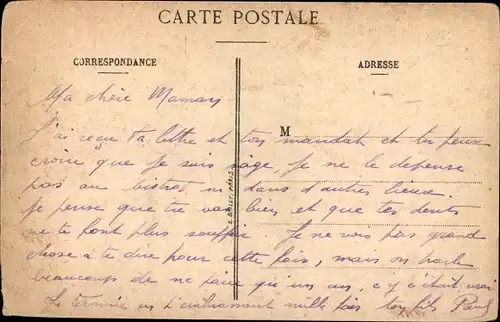 CARTE POSTALE
CORRESPONDANCE
ADRESSE
Ma chère Maman
J'ai reçu ta lettre et ton mandat et tu peux
M
croire que je suis sage, je ne le depense
pas au bistrot ni dans d'autres lieux.
Je pense que tu vas bien et que tes dents
ne te font plus souffrir Je ne vois pas grand
chose a te dire pour cette fois, mais on parle
beaucoup de ne faire qu'un an, si c'était vrai
Je termine en t'embrassant mille fois ton fils Paul